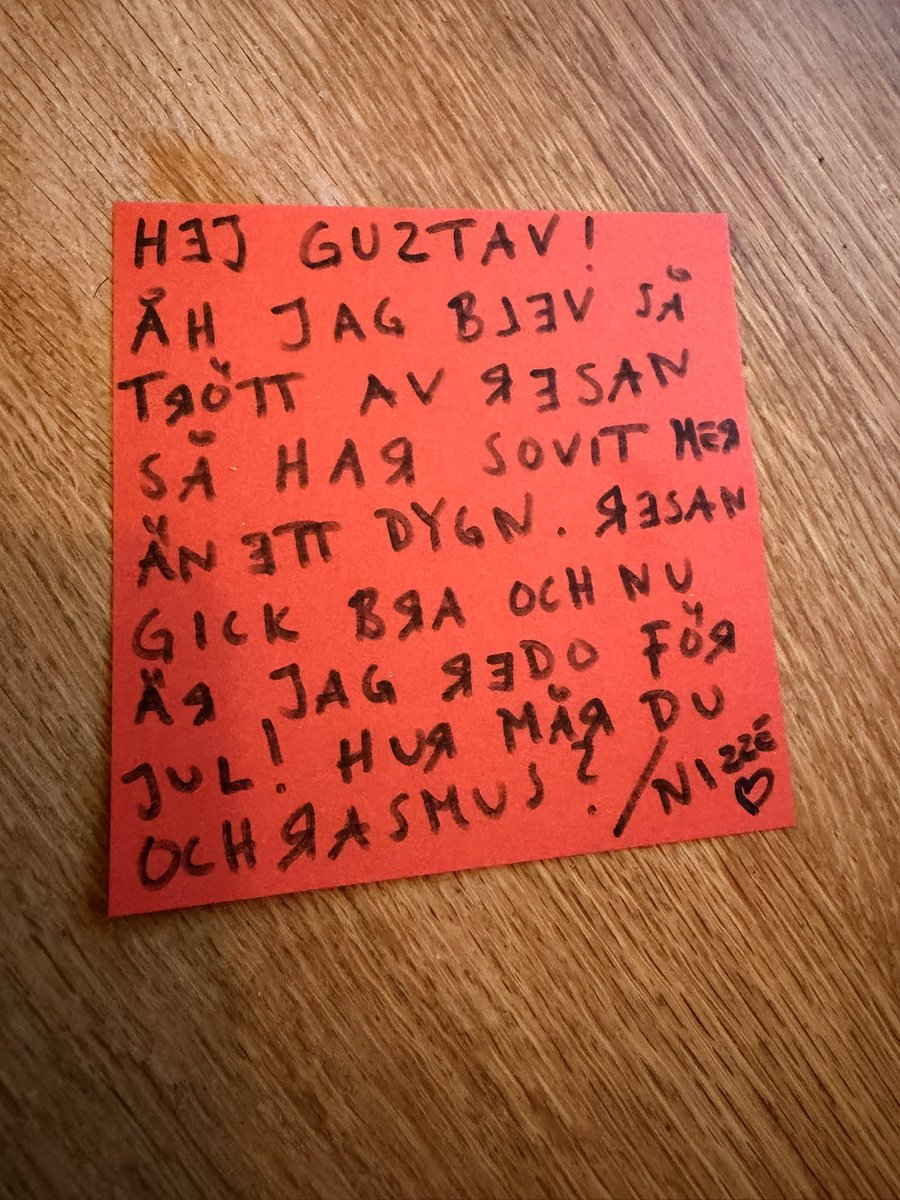 HEJ GUSTAV!
ÅH JAG BLEV SÅ
TRÖTT AV RESAN
SÅ HAR SOVIT MER
ÄN ETT DYGN. RESAN
GICK BRA OCH NU
ÄR JAG REDO FÖR
JUL! HUR MÅR DU
OCH RASMUS? /NIZZE